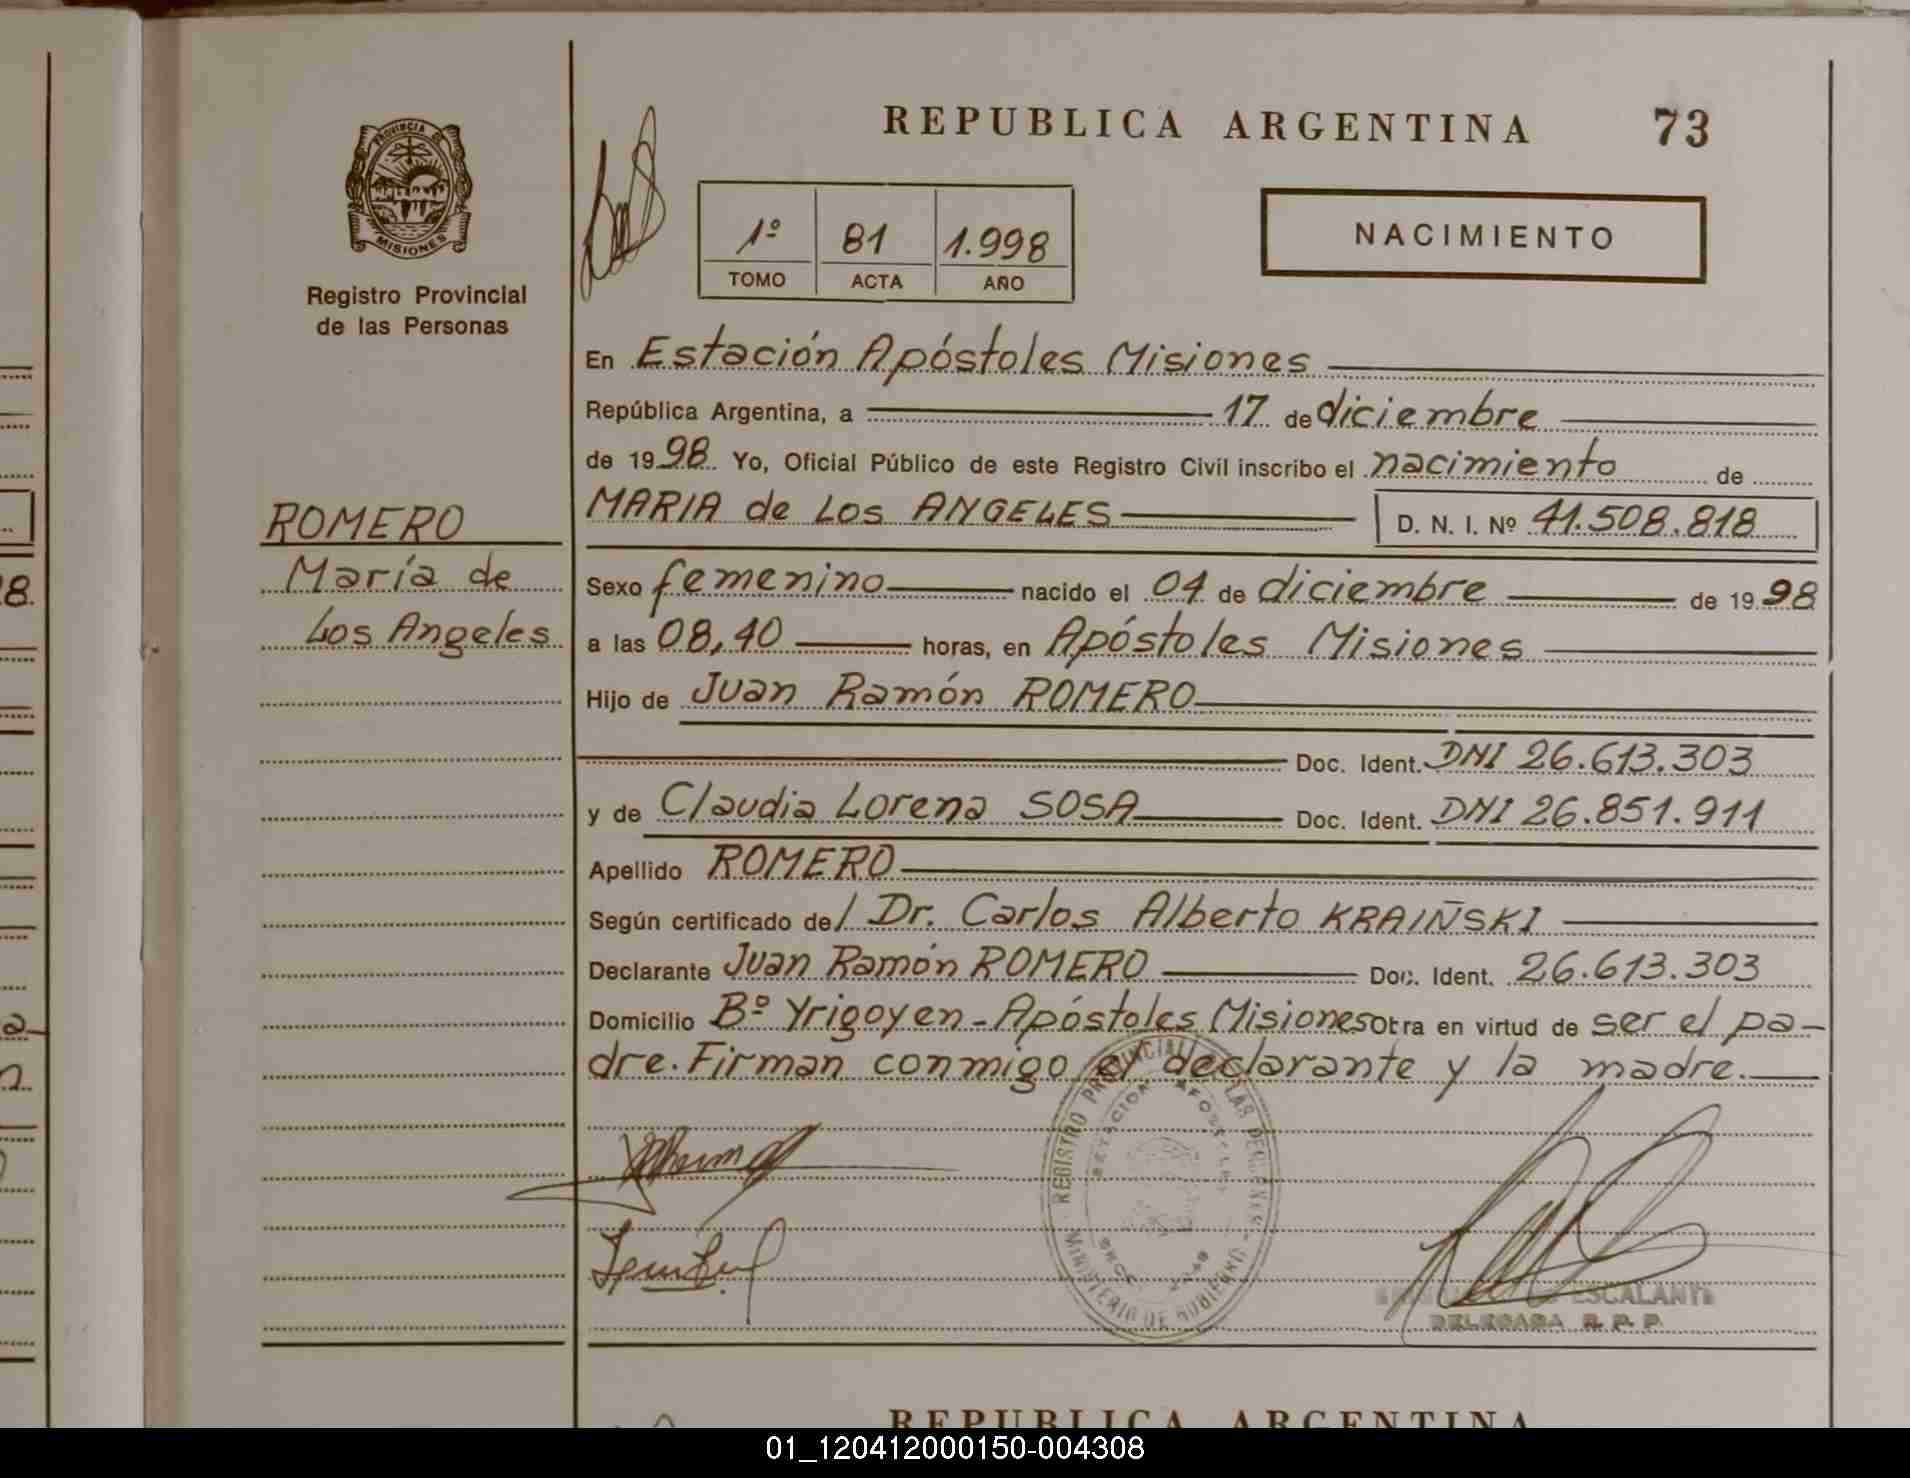 REPUBLICA ARGENTINA 73
PROVINCIA DE
MISIONES
Registro Provincial
de las Personas
1º 81 1.998
TOMO ACTA AÑO
NACIMIENTO
En Estación Apóstoles Misiones
República Argentina, a 17 de diciembre
de 1998 Yo, Oficial Público de este Registro Civil inscribo el nacimiento de
MARIA de Los ANGELES D. N. I. Nº 41.508.818
ROMERO
María de
Los Angeles
Sexo femenino nacido el 04 de diciembre de 1998
a las 08,40 horas, en Apóstoles Misiones
Hijo de Juan Ramón ROMERO
Doc. Ident. DNI 26.613.303
y de Claudia Lorena SOSA Doc. Ident. DNI 26.851.911
Apellido ROMERO
Según certificado de/ Dr. Carlos Alberto KRAIÑSKI
Declarante Juan Ramón ROMERO Doc. Ident. 26.613.303
Domicilio Bº Yrigoyen - Apóstoles Misiones Obra en virtud de ser el pa-
dre. Firman conmigo el declarante y la madre.
REGISTRO PROVINCIAL DE LAS PERSONAS
ESTACION APOSTOLES
MINISTERIO DE GOBIERNO
ESCALANTE
DELEGADA R. P. P.
REPUBLICA ARGENTINA
01_120412000150-004308